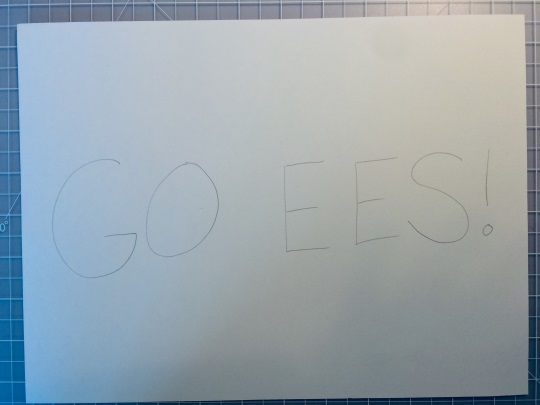 GO EES!
0°